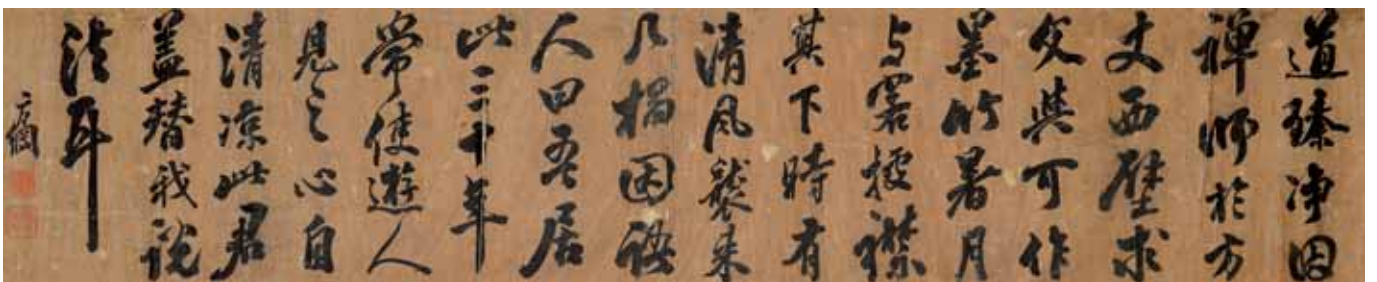 道臻净因
禅师於方
丈西壁求
文與可作
墨竹暑月
与客披襟
其下時有
清風襲来
几榻因語
人曰吾居
此二十年
常使遊人
見之心自
清凉此君
盖替我說
法耳